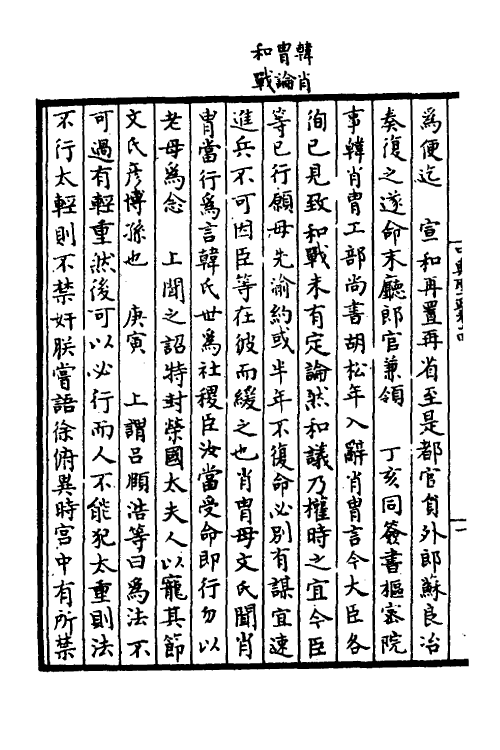 韓肖
胄論
和戰
爲便迄　宣和再置再省至是都官員外郎蘇良冶
奏復之遂命末廳郎官兼領　丁亥同簽書樞密院
事韓肖胄工部尚書胡松年入辭肖胄言今大臣各
徇已見致和戰未有定論然和議乃權時之宜令臣
等已行願毋先渝約或半年不復命必别有謀宜速
進兵不可因臣等在彼而緩之也肖胄母文氏聞肖
胄當行爲言韓氏世爲社稷臣汝當受命即行勿以
老母爲念　上聞之詔特封榮國太夫人以寵其節
文氏彦博孫也　庚寅　上謂吕頤浩等曰爲法不
可過有輕重然後可以必行而人不能犯太重則法
不行太輕則不禁奸朕嘗語徐俯異時宫中有所禁